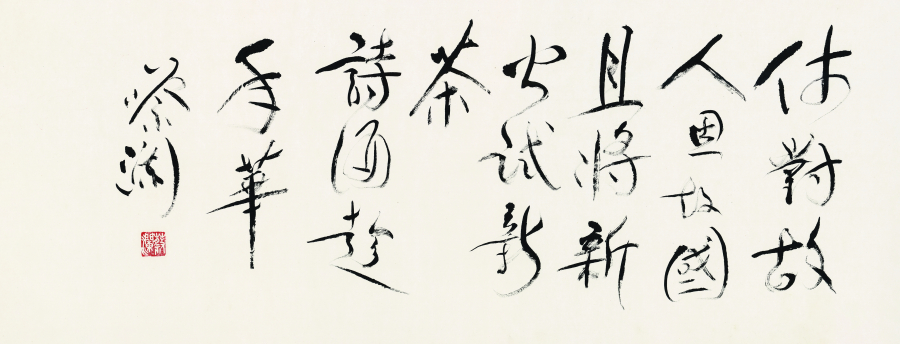 休對故
人思故國
且將新
火試新
茶
詩酒趁
年華
蔡瀾